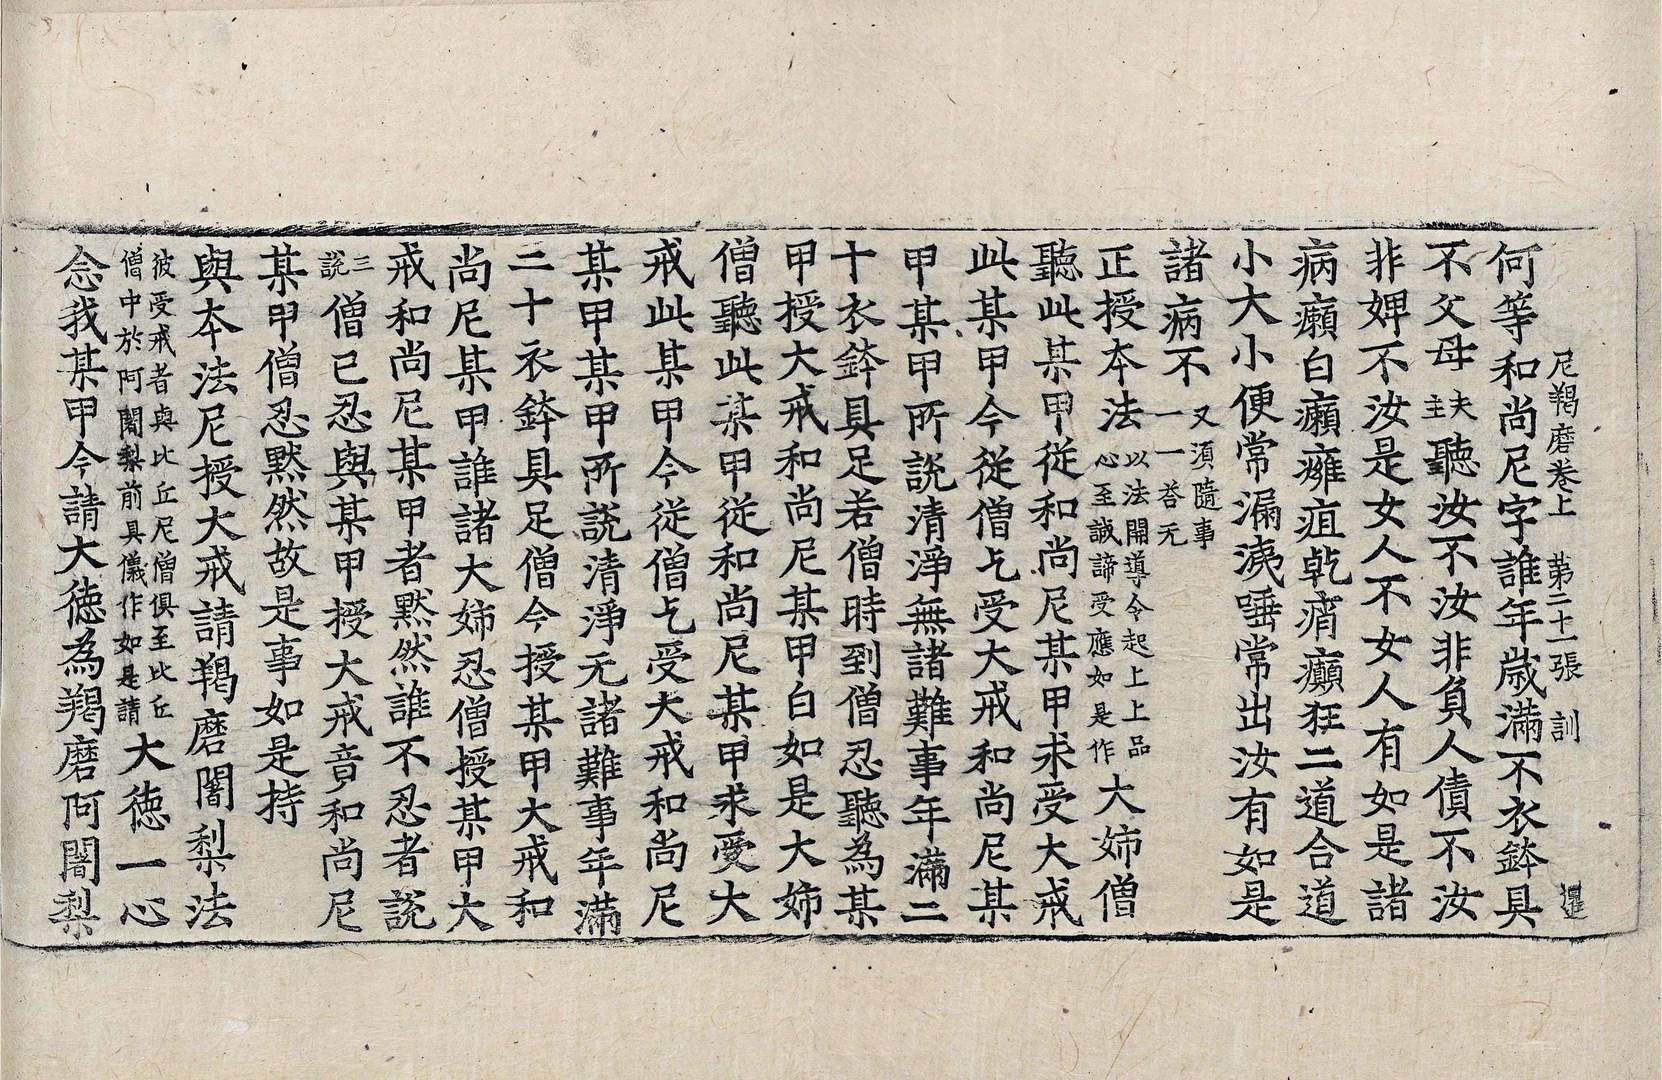 尼羯磨卷上 第二十一張 訓
何等和尚尼字誰年歲滿不衣鉢具
不父母夫主聽汝不汝非負人債不汝
非婢不汝是女人不女人有如是諸
病癩白癩癰疽乹痟癲狂二道合道
小大小便常漏洟唾常出汝有如是
諸病不又須隨事一一荅无
正授本法以法開導令起上上品心至誠諦受應如是作大姉僧
聽此某甲從和尚尼某甲求受大戒
此某甲今從僧乞受大戒和尚尼某
甲某甲所說清淨無諸難事年滿二
十衣鉢具足若僧時到僧忍聽為某
甲授大戒和尚尼某甲白如是大姉
僧聽此某甲從和尚尼某甲求受大
戒此某甲今從僧乞受大戒和尚尼
某甲某甲所說清淨无諸難事年滿
二十衣鉢具足僧今授某甲大戒和
尚尼某甲誰諸大姉忍僧授某甲大
戒和尚尼某甲者黙然誰不忍者說
三說僧已忍與某甲授大戒竟和尚尼
某甲僧忍黙然故是事如是持
與本法尼授大戒請羯磨闍梨法
彼受戒者與比丘尼僧俱至比丘僧中於阿闍梨前具儀作如是請大徳一心
念我某甲今請大徳為羯磨阿闍梨